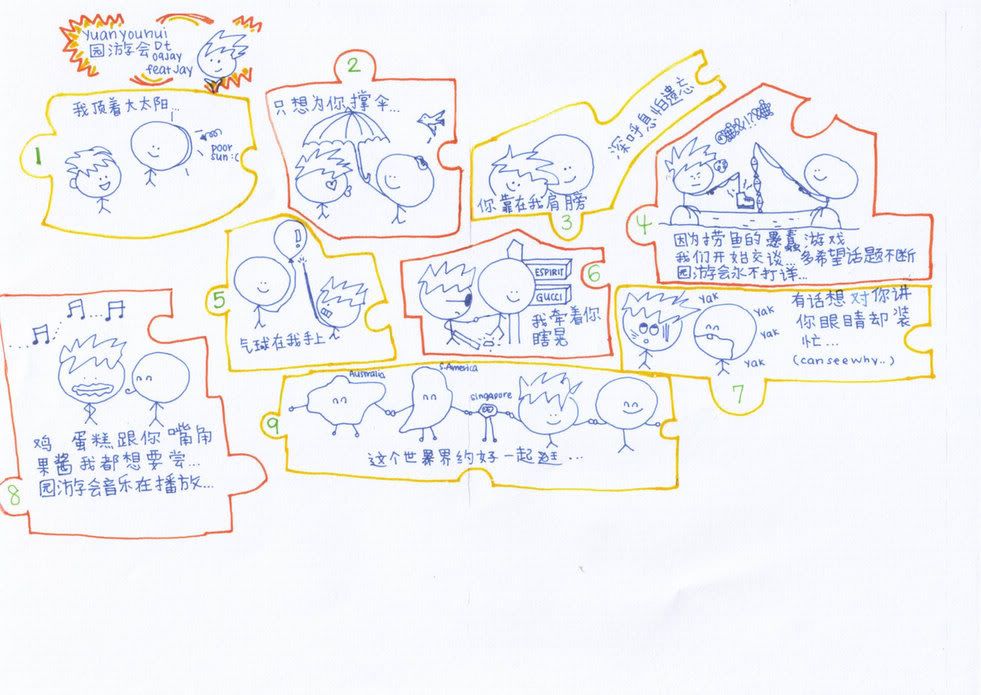 yuanyouhui
园游会 Dt
09Jay
feat Jay
1
我顶着大太阳...
poor
sun :c
2
只想为你撑伞...
3
深呼息怕遗忘
你靠在我肩膀
4
因为捞鱼的愚蠢游戏
我们开始交谈...多希望话题不断
园游会永不打详...
5
!
气球在我手上~
6
ESPIRIT
GUCCI
我牵着你
瞎晃
7
YAK
YAK
YAK
YAK
有话想对你讲
你眼睛却装
忙...
(can see why..)
8
鸡 蛋糕跟你嘴角
果酱我都想要尝...
园游会音乐在播放...
9
Australia
S.America
Singapore
这个世界约好一起逛...